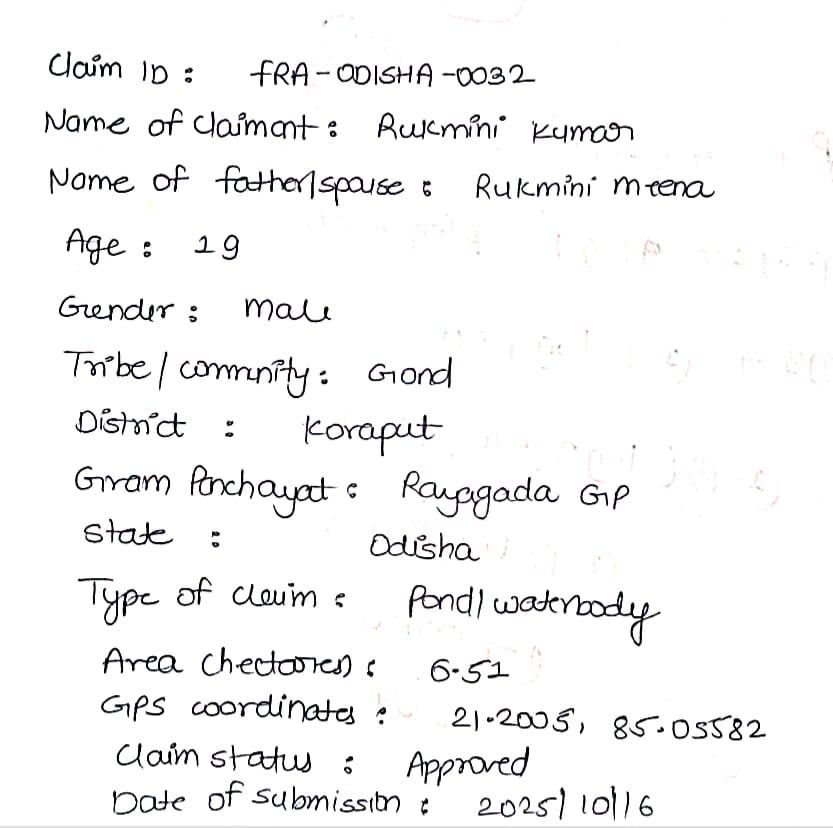 Claim ID : FRA-ODISHA-0032
Name of Claimant : Rukmini Kumar
Name of father/spouse : Rukmini meena
Age : 29
Gender : male
Tribe / community : Gond
District : Koraput
Gram Panchayat : Rayagada GP
state : Odisha
Type of claim : Pond/ waterbody
Area (hectares) : 6.51
GPS coordinates : 21.2005, 85.05582
Claim status : Approved
Date of submission : 2025/10/16